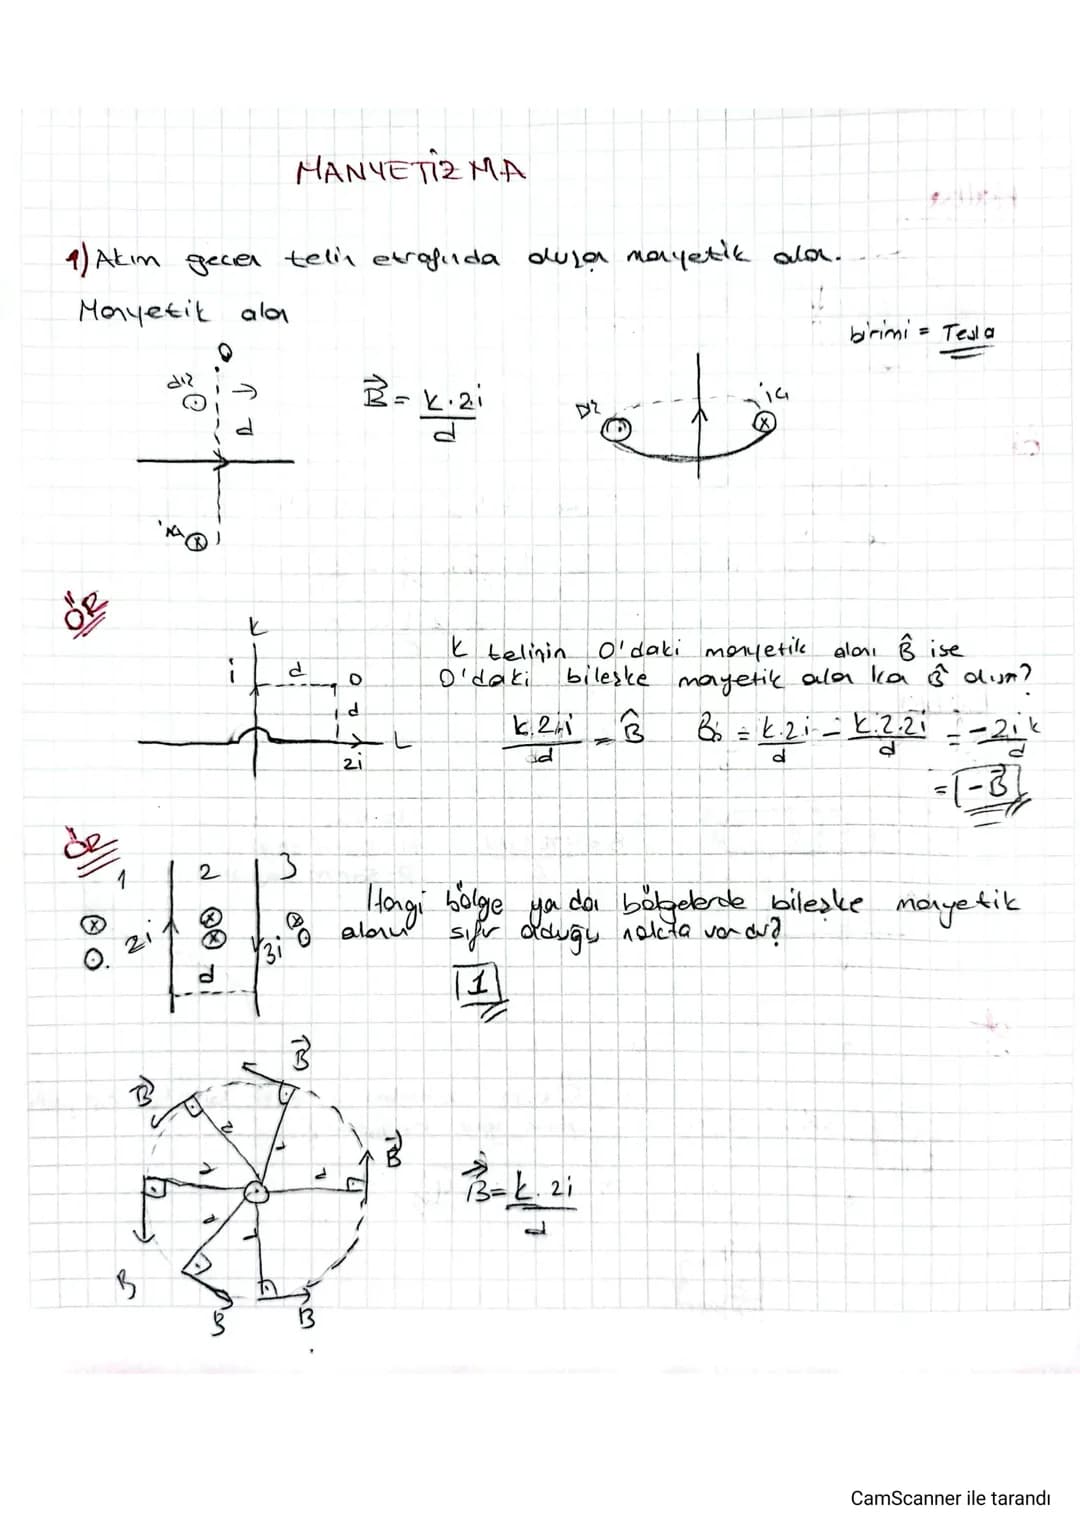 MANYETİZMA
1) Akım geçen telin etrafında oluşan manyetik alan.
Manyetik alan
birimi = Tesla
dış
d
B = k.2i / d
Dış
iç
ÖR
K
i
d
O
d
L
2i
K telinin O'daki manyetik alanı B ise
O'daki bileşke manyetik alan kaç B olur?
k.2.i / d = B
Bb = k.2i / d - k.2.2i / d = -2ik / d
= -B
ÖR
1 2 3
2i
3i
d
Hangi bölge ya da bölgelerde bileşke manyetik
alanın sıfır olduğu nokta vardır?
1
B
B
B
d
d
d
d
B = k.2i / d
B
B
B
CamScanner ile tarandı